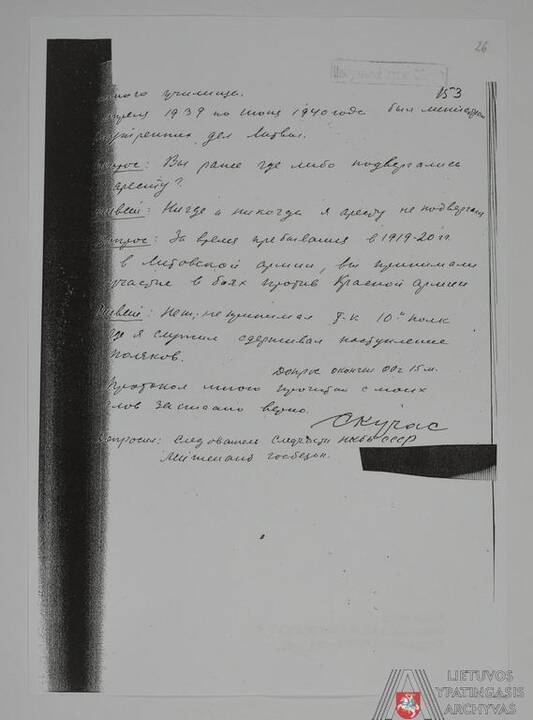 26
153
ного училища.
апреля 1939 по июнь 1940 года был министром
внутренних дел Литвы.
опрос: Вы ранее где либо подвергались
аресту?
твет: Нигде и никогда я аресту не подвергался
опрос: За время пребывания в 1919-20 гг.
в литовской армии, вы принимали
участие в боях против Красной армии
твет: Нет, не принимал т-к 10й полк
где я служил сдерживал наступление
поляков.
Допрос окончен 00 ч 15 м.
Протокол мною прочитан с моих
слов записано верно.
Скучас
опросил: Следователь Следчасти НКВД СССР
Лейтенант госбезоп.
LIETUVOS
YPATINGASIS
ARCHYVAS